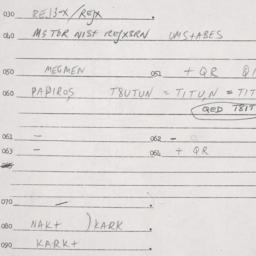 030 REJZ-X/REJX
040 MSTOR NIST REJXBRN UMS+ABES
050 MEGMEN 051 + QR
060 PAPIROS, T8UTUN = TITUN = TIT
QED T8IT
061 - 062 -
063 - 064 + QR
070 -
080 NAK+ ) KARK
090 KARK+